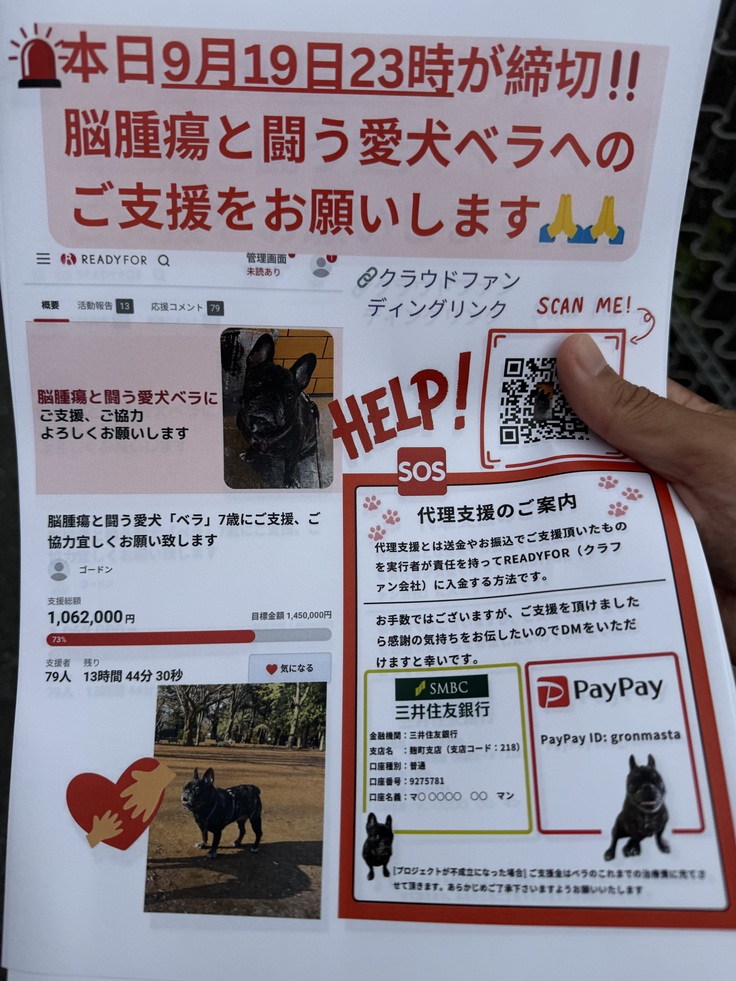 本日9月19日23時が締切!!
脳腫瘍と闘う愛犬ベラへの
ご支援をお願いします
READYFOR
管理画面
未読あり
1
概要 活動報告 13 応援コメント 79
脳腫瘍と闘う愛犬ベラに
ご支援、ご協力
よろしくお願いします
脳腫瘍と闘う愛犬「ベラ」7歳にご支援、ご
協力宜しくお願い致します
ゴードン
支援総額
1,062,000円 目標金額 1,450,000円
73%
支援者 残り
79人 13時間 44分 30秒
気になる
クラウドファン
ディングリンク
SCAN ME!
HELP!
SOS
代理支援のご案内
代理支援とは送金やお振込でご支援頂いたもの
を実行者が責任を持ってREADYFOR(クラフ
ァン会社)に入金する方法です。
お手数ではございますが、ご支援を頂けました
ら感謝の気持ちをお伝したいのでDMをいただ
けますと幸いです。
SMBC
三井住友銀行
金融機関:三井住友銀行
支店名 :麹町支店(支店コード:218)
口座種別:普通
口座番号:9275781
口座名義:マ○ ○○○○ ○○ マン
PayPay
PayPay ID: gronmasta
[プロジェクトが不成立になった場合] ご支援金はベラのこれまでの治療費に充てさ
せて頂きます。あらかじめご了承下さいますようお願いいたします